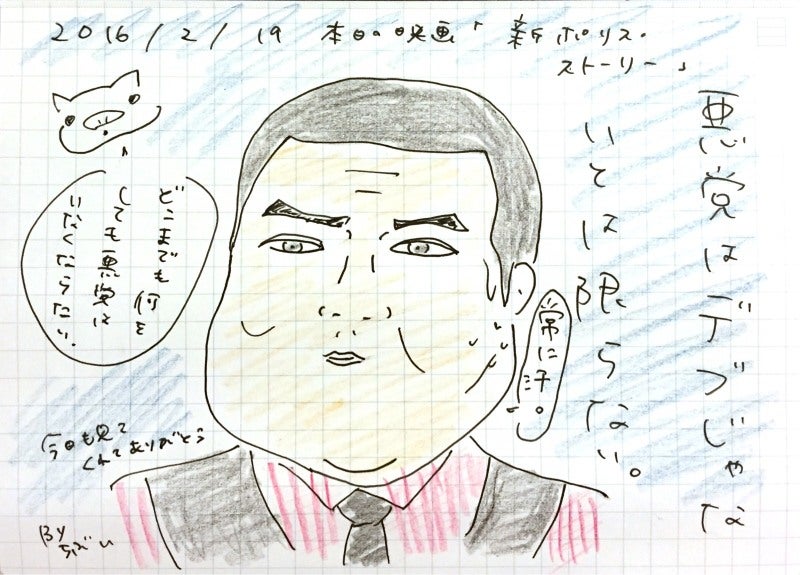 2016/2/19 本日の映画「新ポリス・
ストーリー」
悪党はデブじゃな
いとは限らない。
常に汗。
どこまでも何を
しても悪党は
いなくならない。
今日も見て
くれてありがとう
By